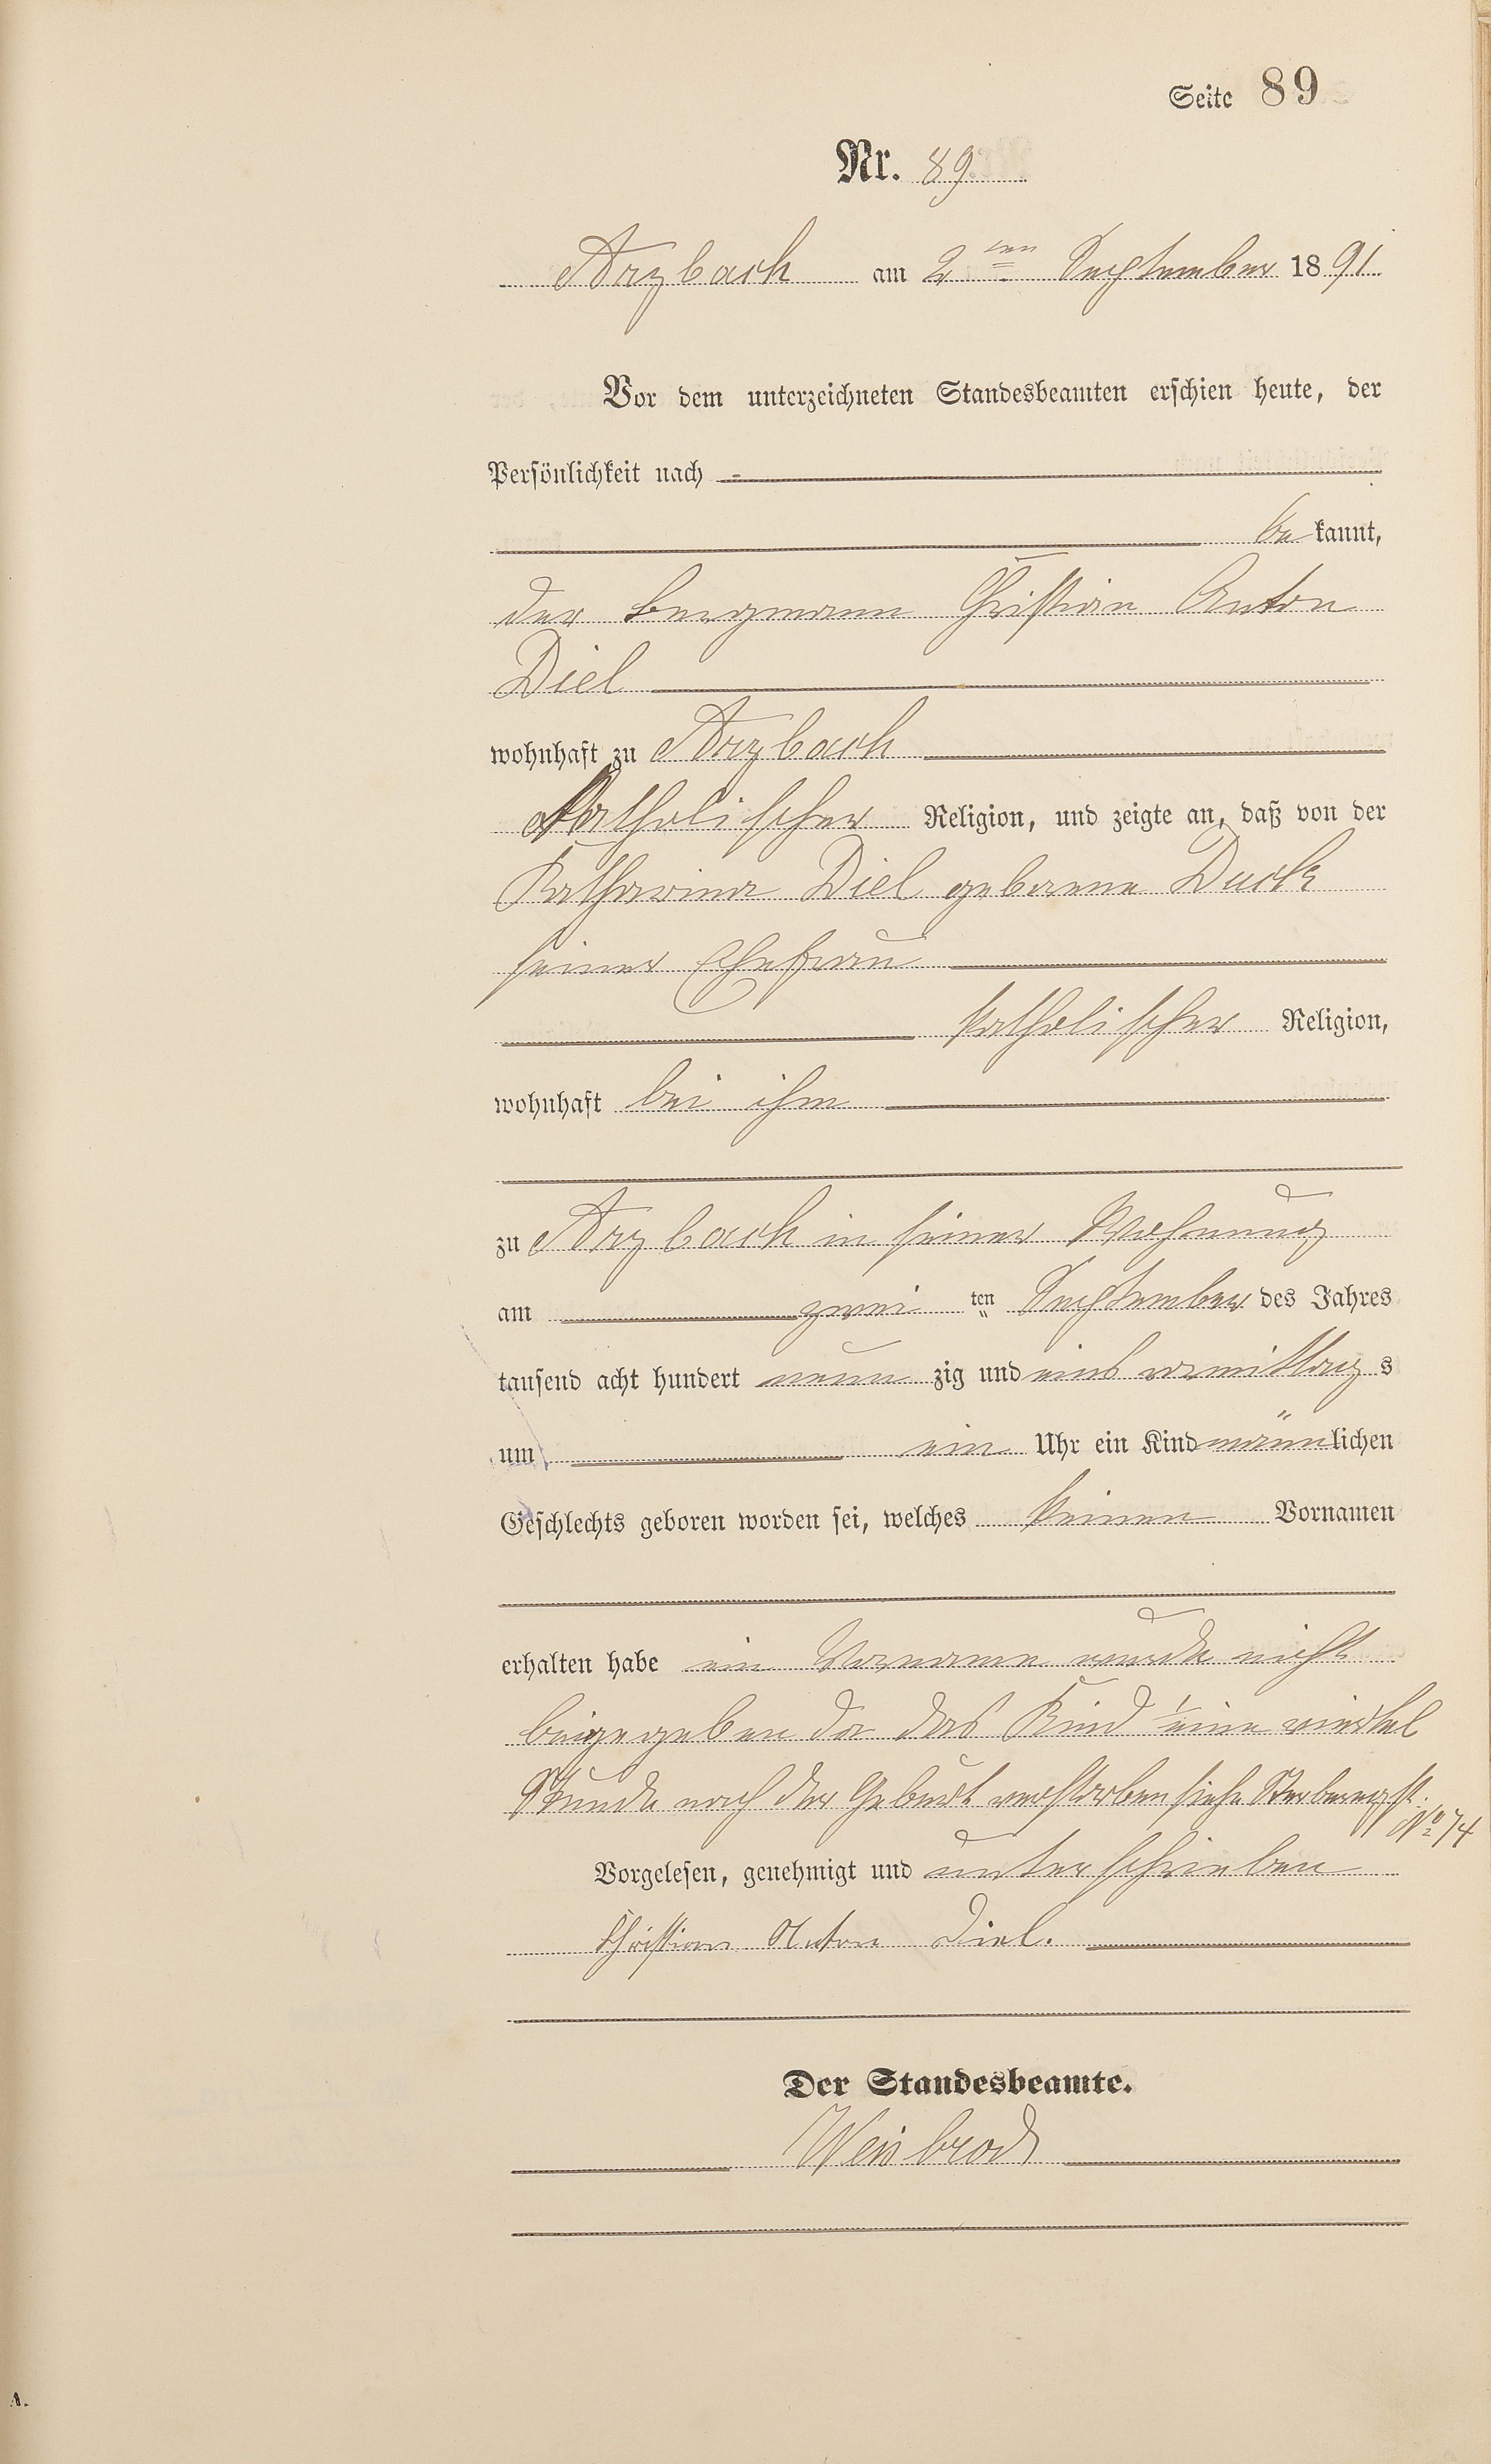 Seite 89
Nr. 89
Arzbach am 2ten September 1891
Vor dem unterzeichneten Standesbeamten erschien heute, der
Persönlichkeit nach
be kannt,
der Bergmann Christian Anton
Diel
wohnhaft zu Arzbach
Katholischer Religion, und zeigte an, daß von der
Katharina Diel geborene Duck
seiner Ehefrau
katholischer Religion,
wohnhaft bei ihm
zu Arzbach in seiner Wohnung
am zwei ten September des Jahres
tausend acht hundert neun zig und eins vormittag s
um ein Uhr ein Kind männlichen
Geschlechts geboren worden sei, welches keinen Vornamen
erhalten habe ein Vorname wurde nicht
beigegeben da das Kind eine viertel
Stunde nach der Geburt verstorben siehe Sterberegst.
No 74
Vorgelesen, genehmigt und unterschrieben
Christian Anton Diel.
Der Standesbeamte.
Weisbrod
A.